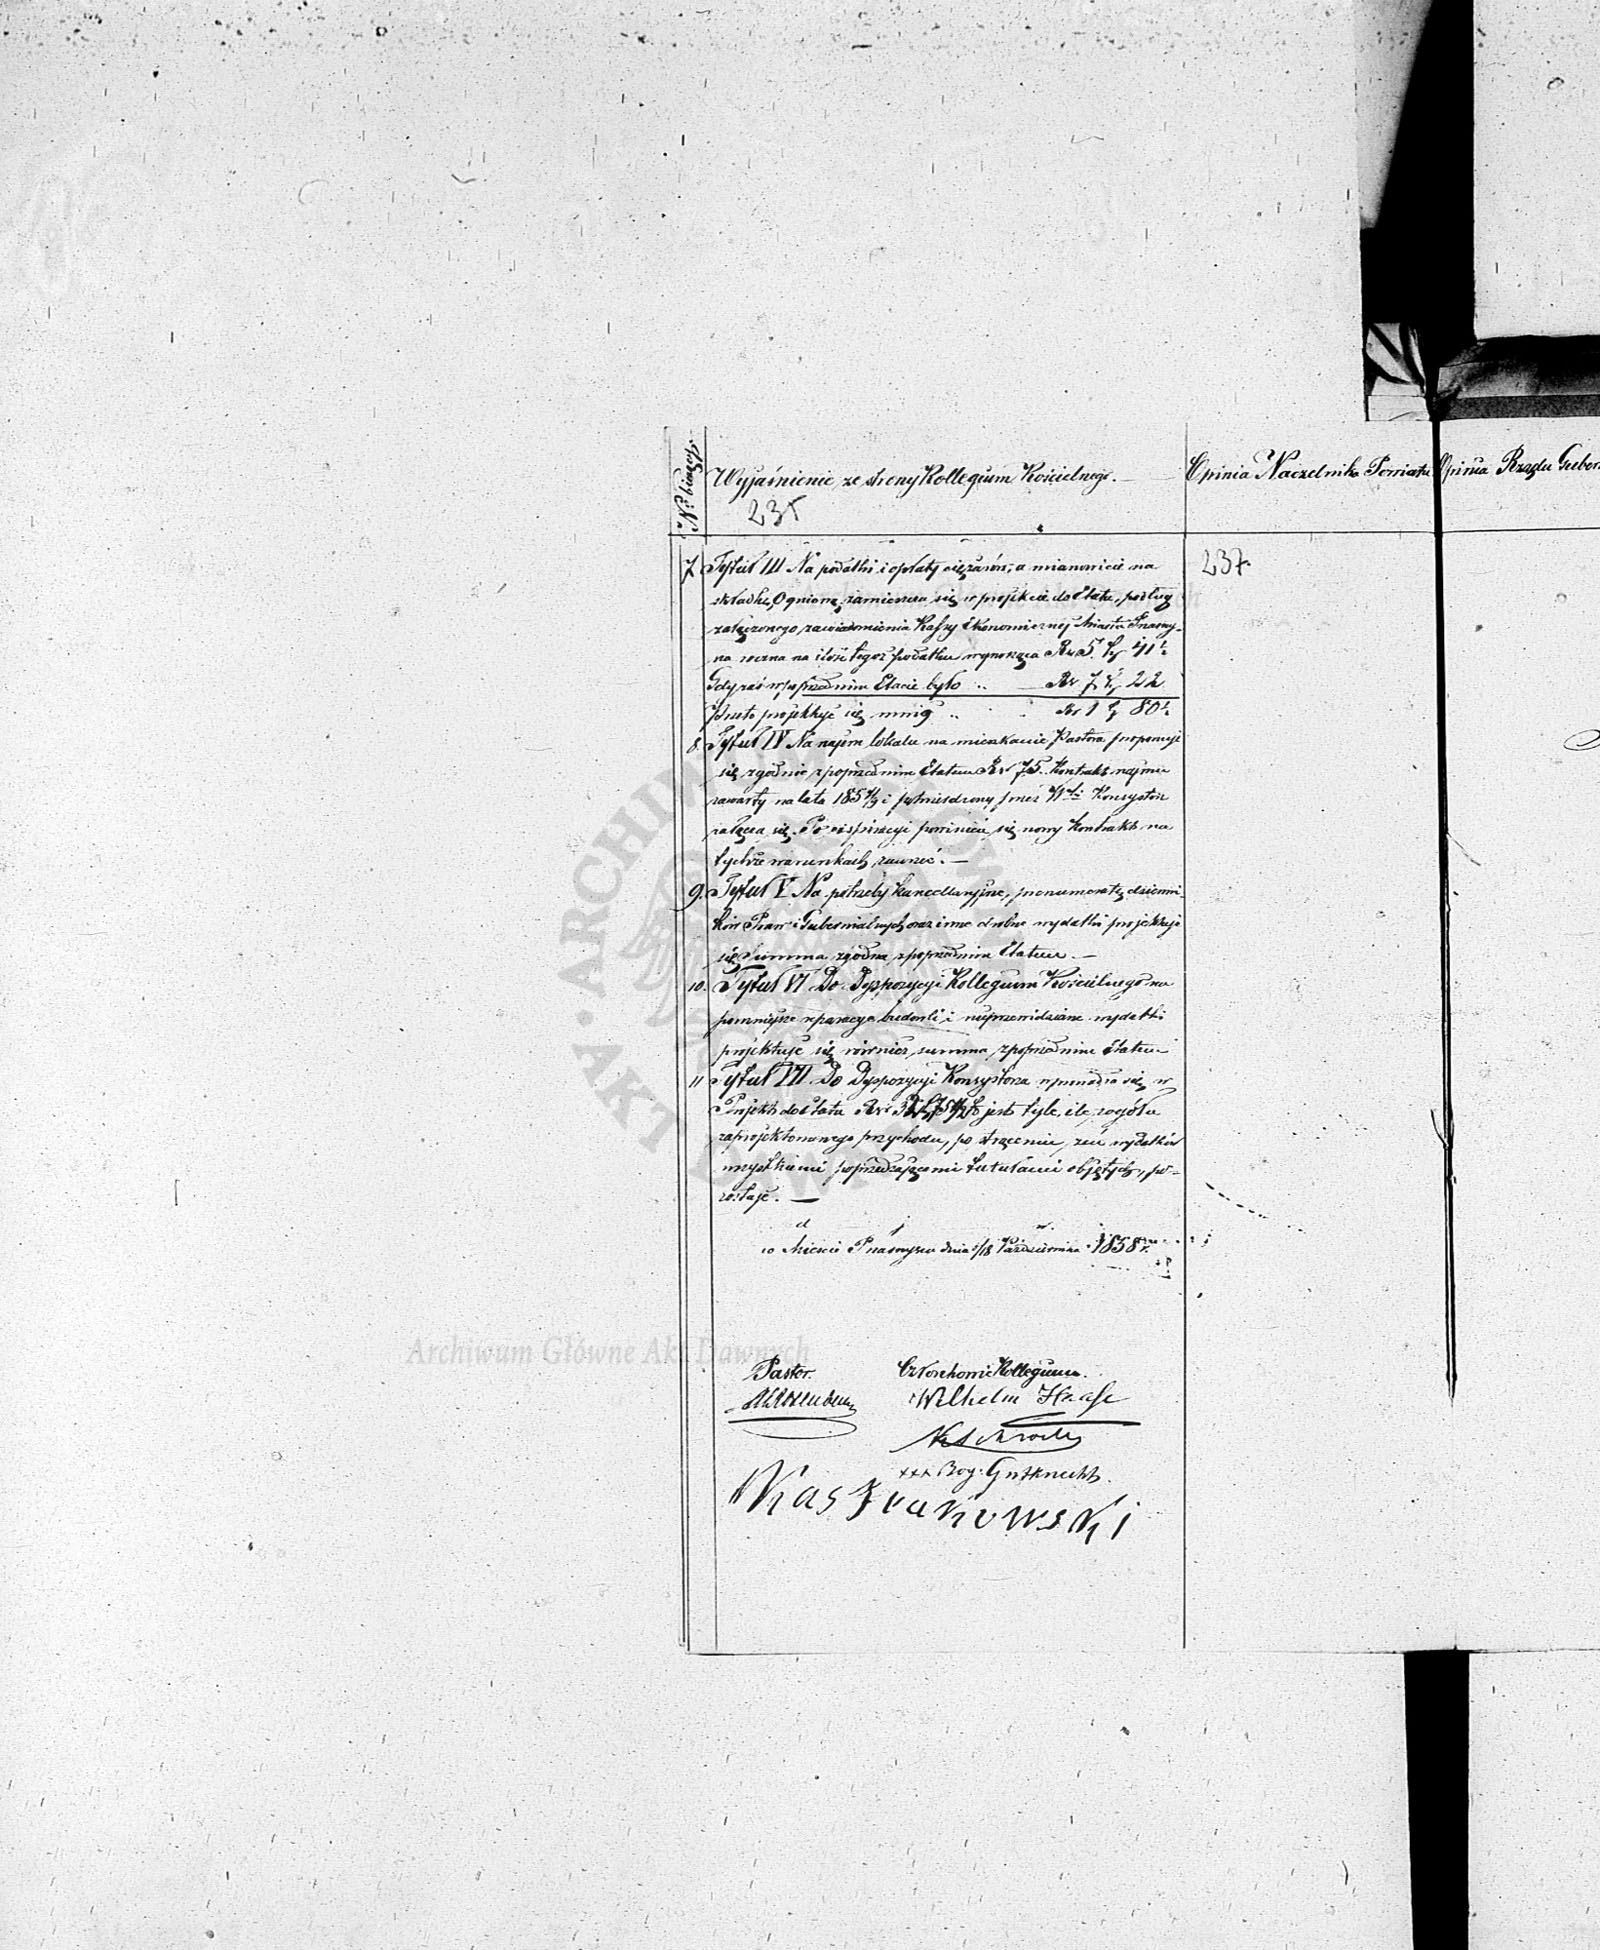 Wyjaśnienie ze strony Kollegium Kościelnego.
Opinia Naczelnika Powiatu
Opinia Rządu Guber
235
237.
7. Tytuł III Na podatki i opłaty ciężarów, a mianowicie na
składkę Ogniową zamieszcza się w projekcie do Etatu, podług
załączonego zawiadomienia Kassy Ekonomicznej Miasta Prasny-
na ilość tegoż podatku wynosząca Rs 5 k 41½
Gdy zaś w poprzednim Etacie było Rs 7 k 22
Przeto projektuje się mniej Rs 1 k 80½
8. Tytuł IV Na najem lokalu na mieszkanie Pastora proponuje
się zgodnie z poprzednim Etatem Rs 75. Kontrakt najmu
zawarty na lata 1857/9 i potwierdzony przez Konsystorz
załącza się. Po expiracyi powinien się nowy Kontrakt na
tychże warunkach zawrzeć. —
9. Tytuł V Na potrzeby kancellaryjne, prenumeratę dzienni-
ków Praw i Gubernialnych oraz inne drobne wydatki projektuje
się Summa zgodna z poprzednim Etatem. —
10. Tytuł VI Do Dyspozycyi Kollegium Kościelnego na
pomniejsze reparacye budowli i nieprzewidziane wydatki
projektuje się również summa z poprzednim Etatem
11 Tytuł VII Do Dyspozycyi Konsystorza wprowadza się w
Projekt do Etatu Rs jest tyle, ile z ogółu
zaprojektowanego przychodu, po strąceniu zeń wydatków
wszystkiemi poprzedzającemi tytułami objętych, po-
zostaje. —
w Mieście Prasnyszu dnia 6/18 Października 1858 r.
Pastor
Członkowie Kollegium.
Wilhelm Haase
xxx Bog: Gutknecht.
Archiwum Główne Akt Dawnych